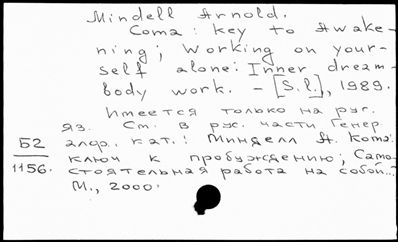 Mindell Arnold.
Coma: key to Awake-
ning; Working on your-
self alone: Inner dream-
body work. – [S. l.], 1989.
Имеется только на рус.
яз. См. в рус. части Генер.
алф. кат.: Минделл А. Кома:
Б2
ключ к пробуждению; Само-
1156.
стоятельная работа на собой...
М., 2000.